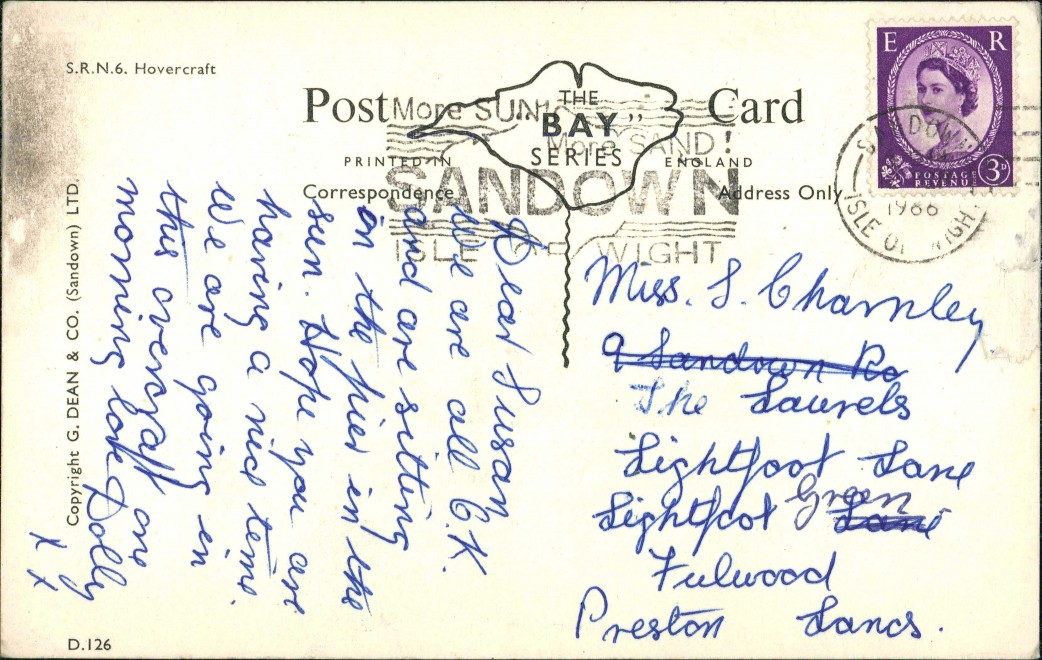 S.R.N.6. Hovercraft
Post Card
THE
"BAY"
SERIES
PRINTED IN ENGLAND
Correspondence
Address Only
More SUN!
More SAND!
SANDOWN
ISLE OF WIGHT
E R
POSTAGE
REVENUE
3D
SANDOWN
1966
ISLE OF WIGHT
Dear Susan
We are all O.K.
and are sitting
on the pier in the
sun. Hope you are
having a nice time.
We are going in
this overcraft one
morning love Dolly
x x
Miss. S. Charnley
9 Sandown Rd
The Laurels
Lightfoot Lane
Lightfoot Green Lane
Fulwood
Preston Lancs.
Copyright G. DEAN & CO. (Sandown) LTD.
D.126